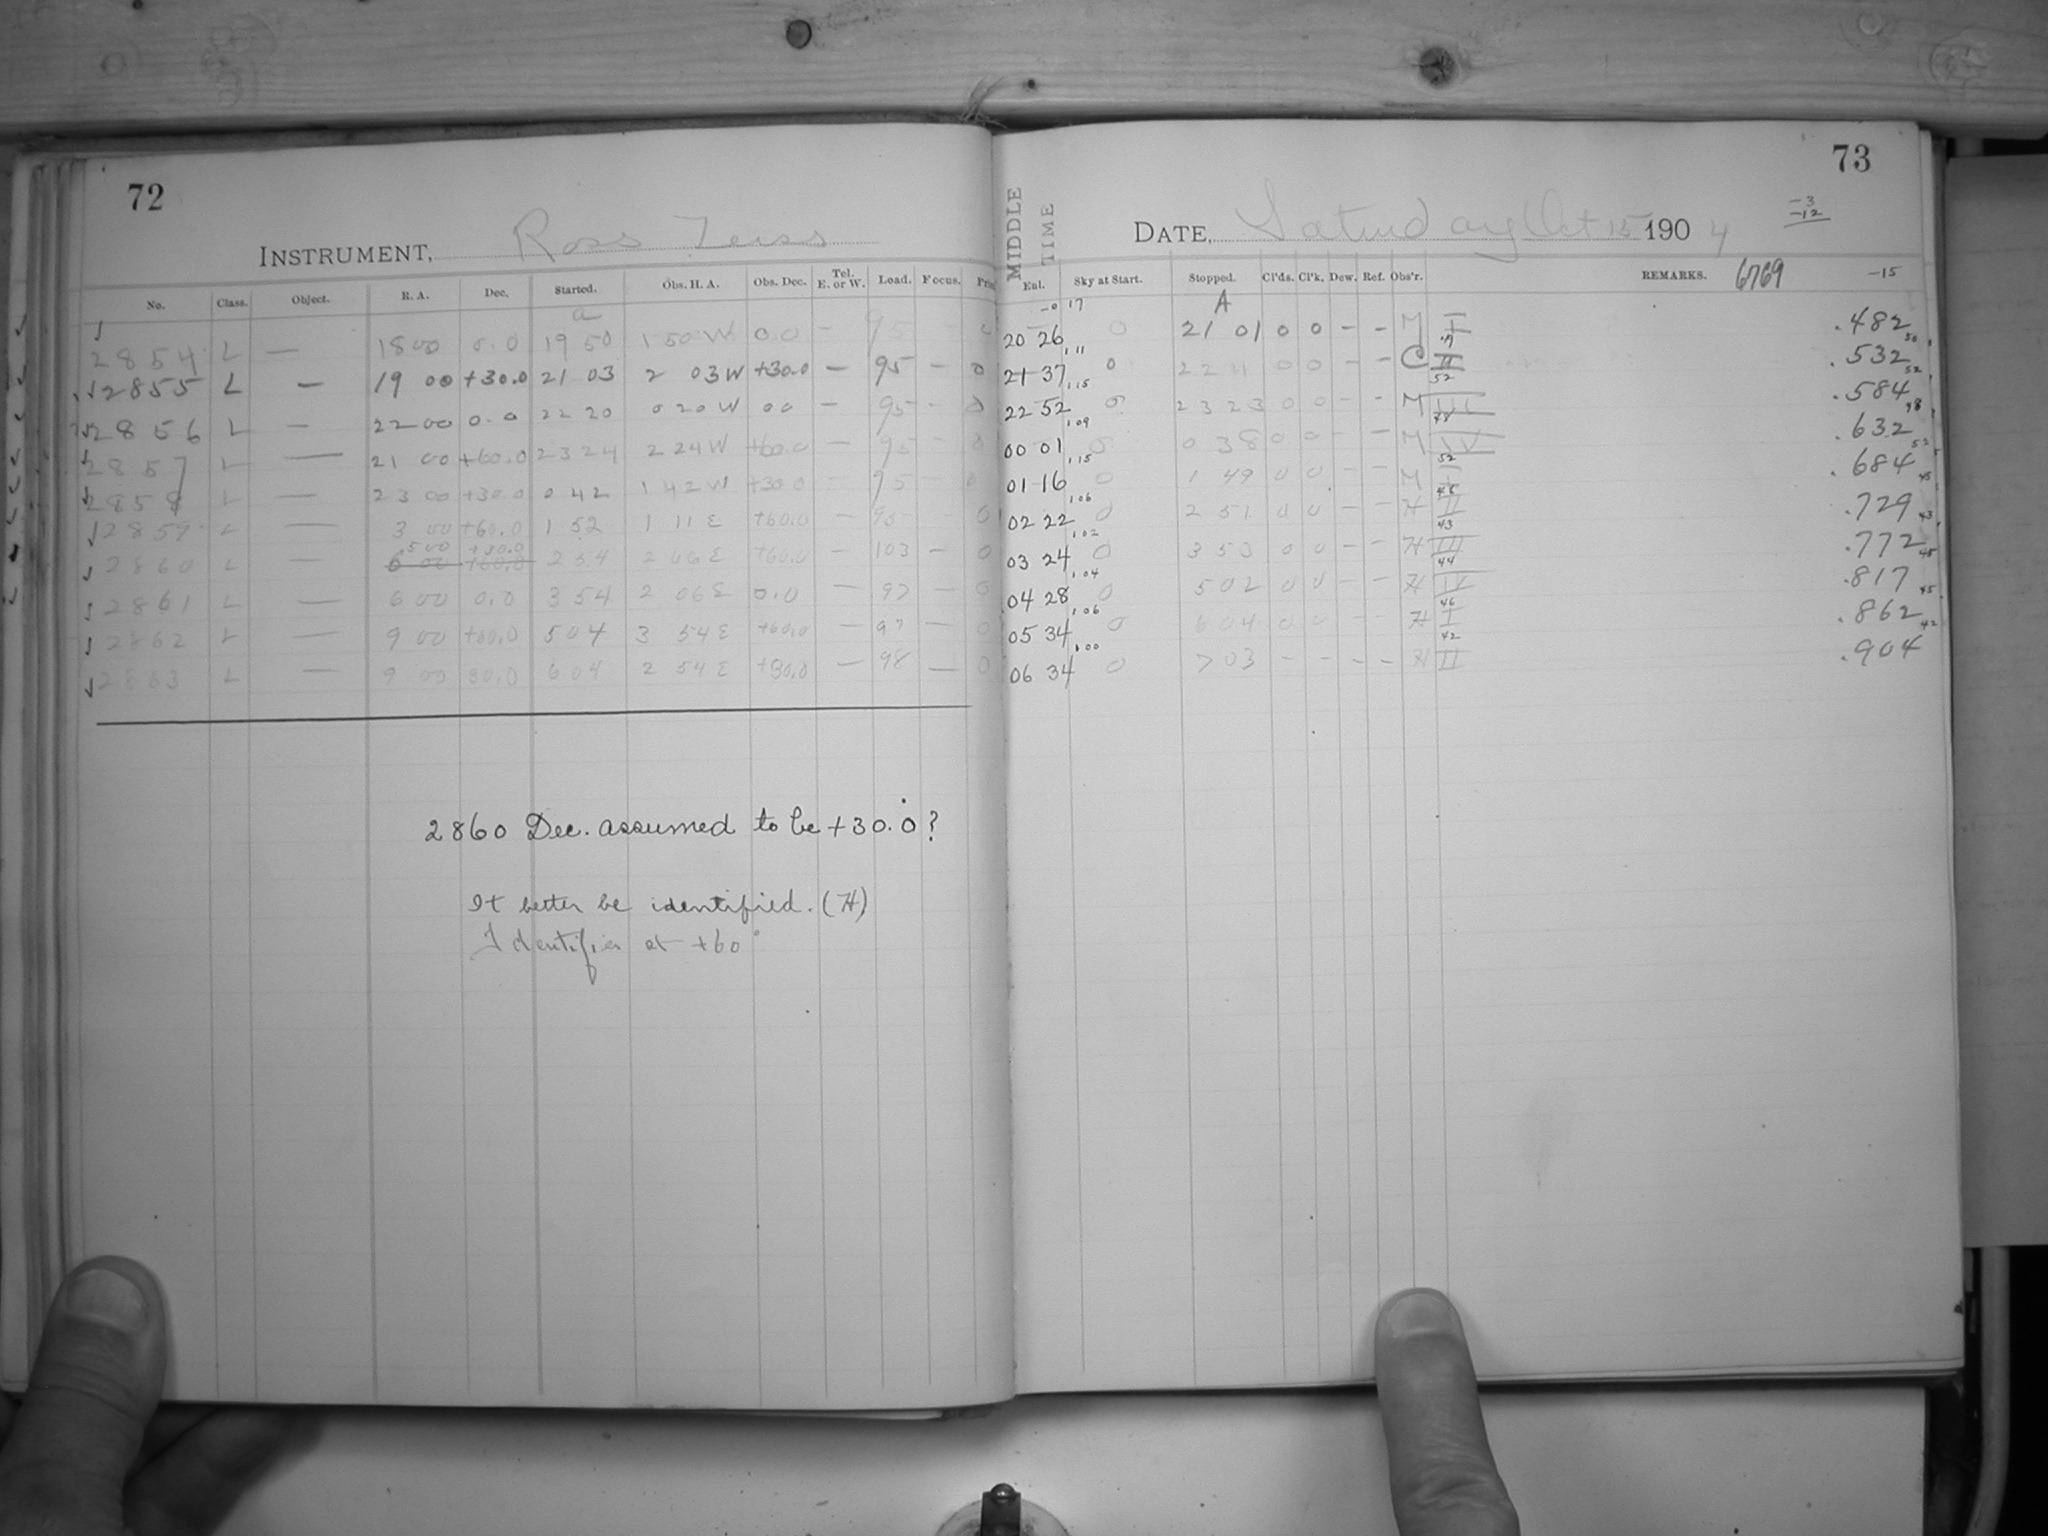 72
INSTRUMENT, Ross Zeiss
No. Class. Object. R. A. Dec. Started. Obs. H. A. Obs. Dec. Tel. E. or W. Load. Focus.
a
2854 L — 18 00 0.0 19 50 1 50 W 0.0 — 95
2855 L — 19 00 +30.0 21 03 2 03 W +30.0 — 95 — 0
2856 L — 22 00 0.0 22 20 0 20 W 0 0 — 95 — 0
2857 L — 21 00 +60.0 23 24 2 24 W +60.0 — 95 — 0
2858 L — 23 00 +30.0 0 42 1 42 W +30.0 — 95 — 0
2859 L — 3 00 +60.0 1 52 1 11 E +60.0 — 95 — 0
5 00 +30.0
2860 L — 6 00 +60.0 2 54 2 06 E +60.0 — 103 — 0
2861 L — 6 00 0.0 3 54 2 06 E 0.0 — 97 — 0
2862 L — 9 00 +60.0 5 04 3 54 E +60.0 — 97 — 0
2863 L — 9 00 30.0 6 04 2 54 E +30.0 — 98 — 0
2860 Dec. assumed to be +30.0?
It better be identified. (H)
Identifies at +60°
73
-3
-12
MIDDLE TIME
DATE, Saturday Oct 15 1904
Eul. Sky at Start. Stopped. Cl'ds. Cl'k. Dew. Ref. Obs'r. REMARKS. 6769 -15
-0 17 A
20 26 0 21 01 0 0 — — M I .482
21 37 0 22 11 0 0 — — C II .532
22 52 0 23 23 0 0 — — M III .584
00 01 0 0 38 0 0 — — M IV .632
01 16 0 1 49 0 0 — — M I .684
02 22 0 2 51 0 0 — — H II .729
03 24 0 3 53 0 0 — — H III .772
04 28 0 5 02 0 0 — — H IV .817
05 34 0 6 04 0 0 — — H I .862
06 34 0 7 03 — — — — H II .904